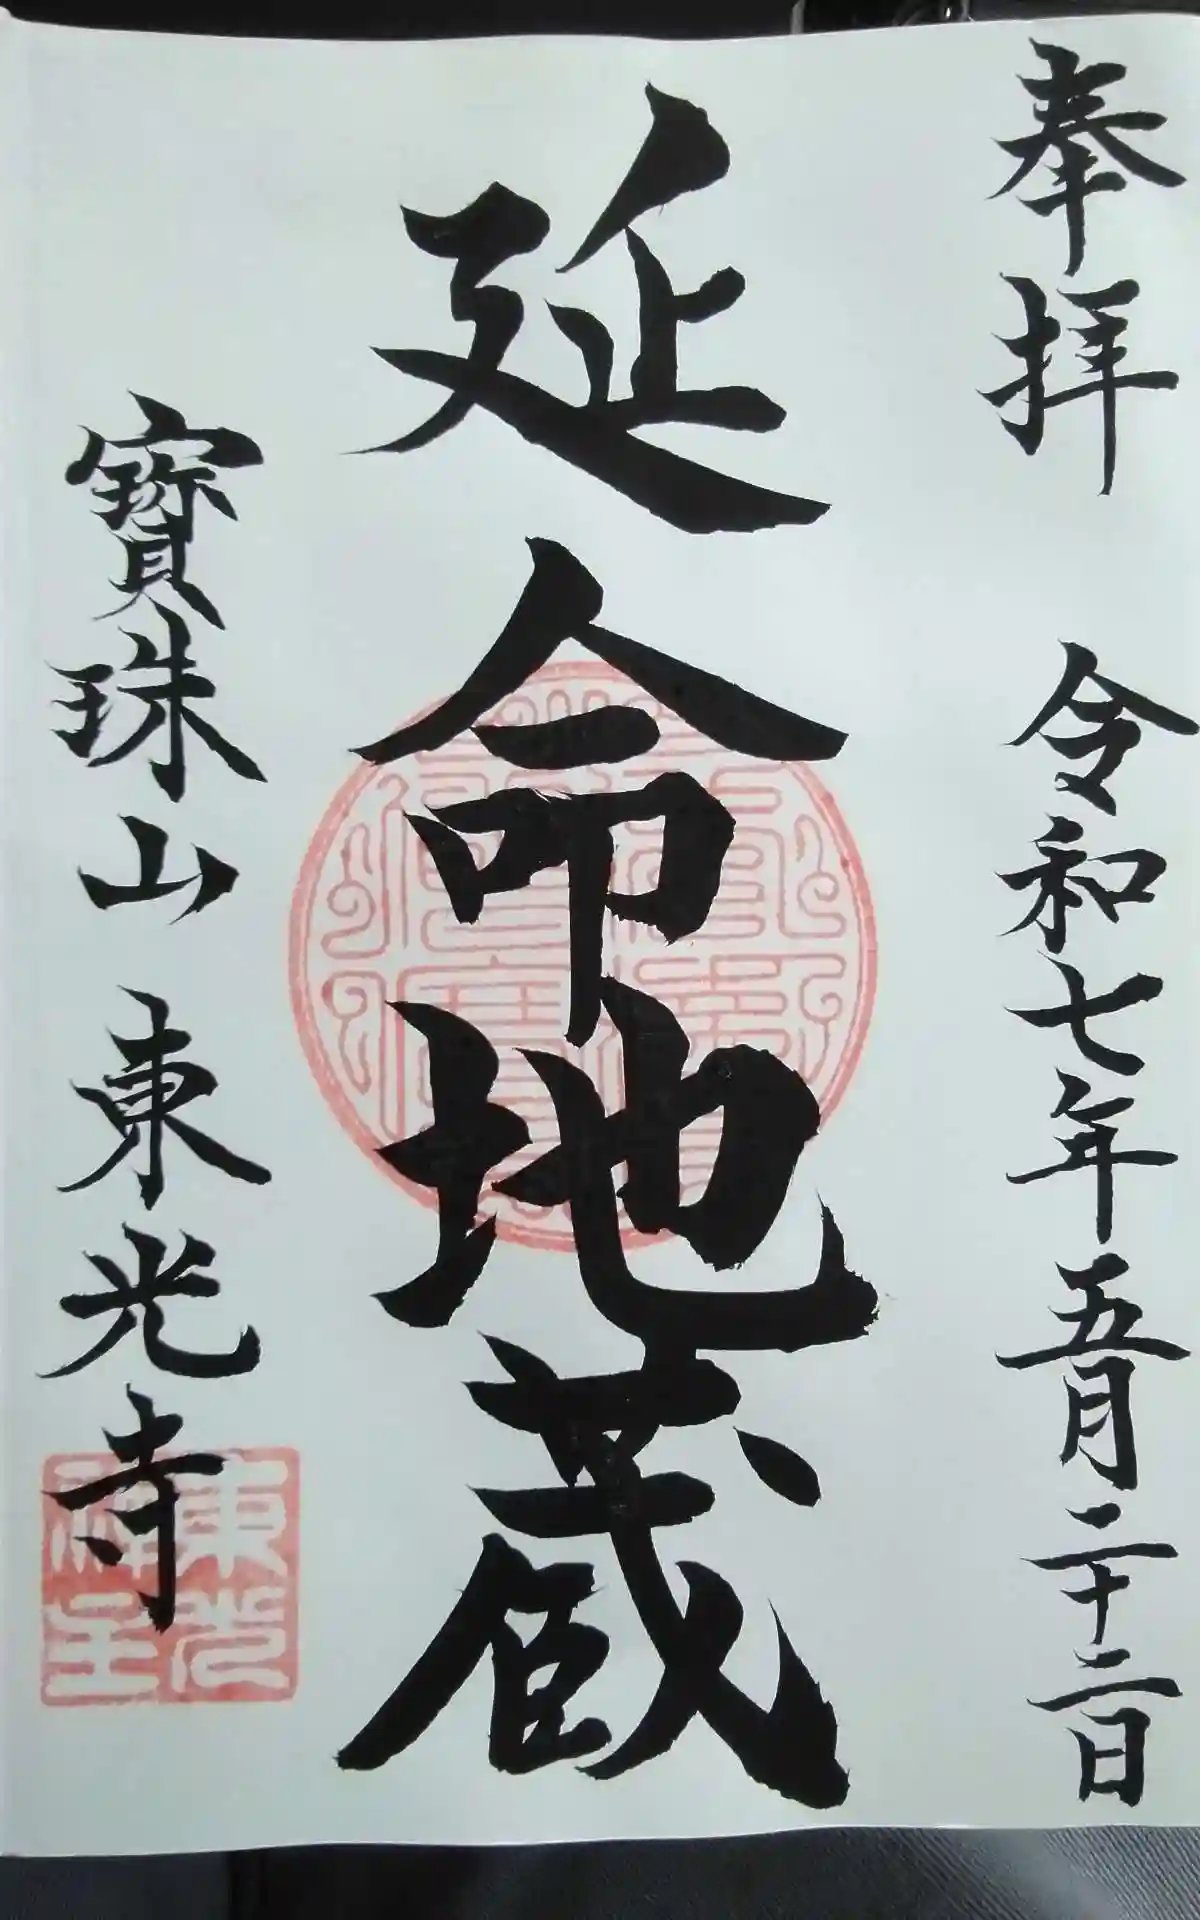 奉拝 令和七年五月二十二日
延命地蔵
寳珠山 東光寺
東光
禅主